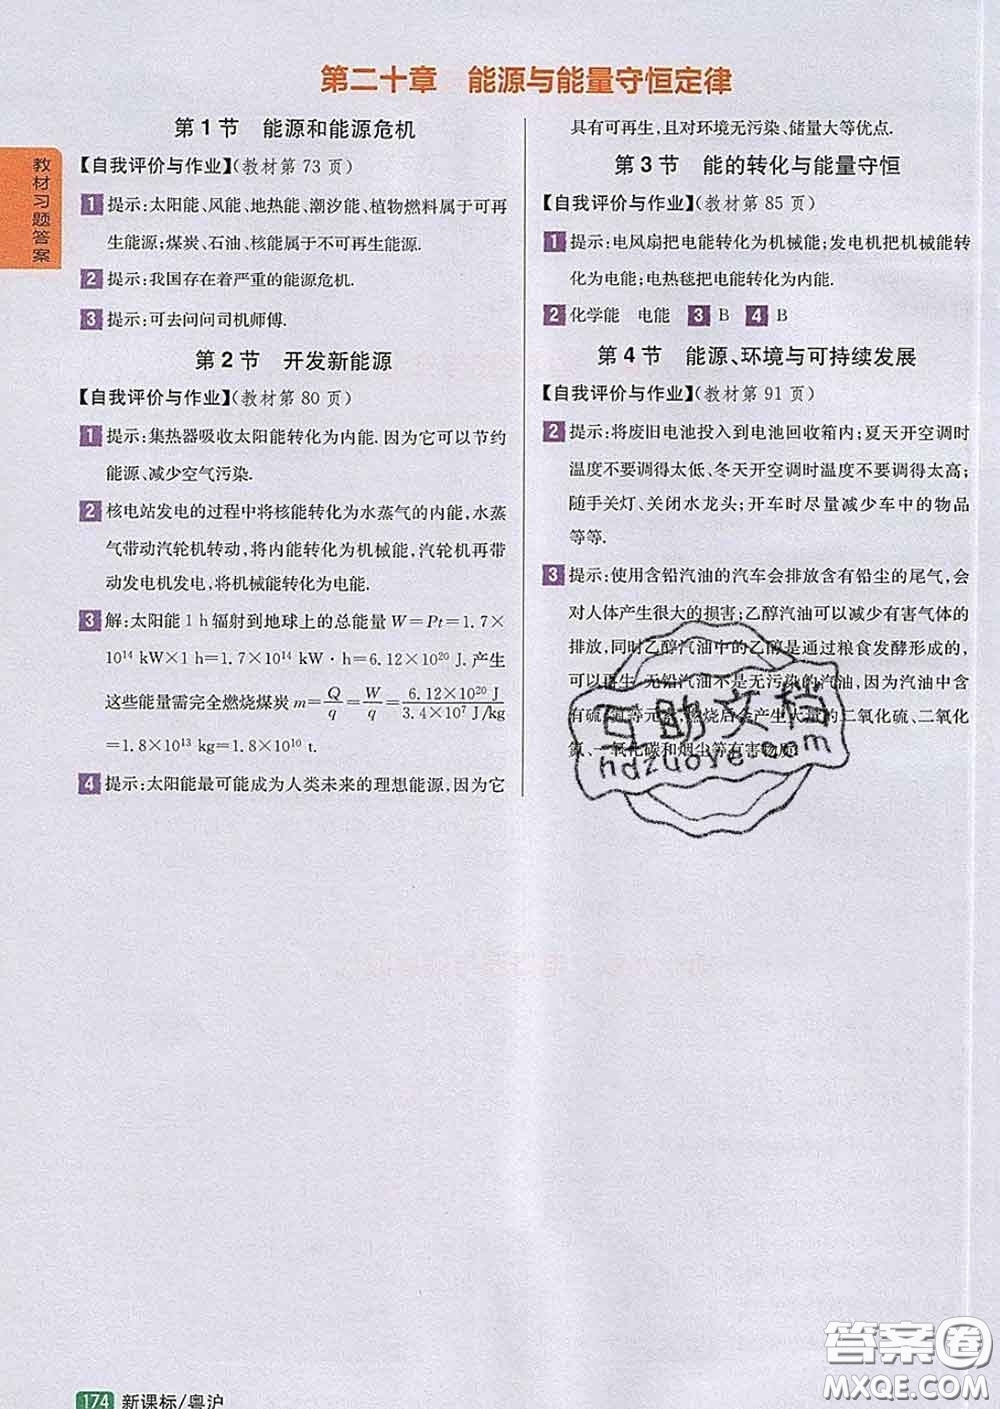 第二十章 能源与能量守恒定律
教材习题答案
第1节 能源和能源危机
【自我评价与作业】(教材第73页)
1 提示:太阳能、风能、地热能、潮汐能、植物燃料属于可再
生能源;煤炭、石油、核能属于不可再生能源.
2 提示:我国存在着严重的能源危机.
3 提示:可去问问司机师傅.
第2节 开发新能源
【自我评价与作业】(教材第80页)
1 提示:集热器吸收太阳能转化为内能. 因为它可以节约
能源、减少空气污染.
2 核电站发电的过程中将核能转化为水蒸气的内能,水蒸
气带动汽轮机转动,将内能转化为机械能,汽轮机再带
动发电机发电,将机械能转化为电能.
3 解:太阳能1 h辐射到地球上的总能量W=Pt=1.7×
10¹⁴ kW×1 h=1.7×10¹⁴ kW·h=6.12×10²⁰ J.产生
这些能量需完全燃烧煤炭m=Q/q=W/q=6.12×10²⁰ J/3.4×10⁷ J/kg
=1.8×10¹³ kg=1.8×10¹⁰ t.
4 提示:太阳能最可能成为人类未来的理想能源,因为它
具有可再生,且对环境无污染、储量大等优点.
第3节 能的转化与能量守恒
【自我评价与作业】(教材第85页)
1 提示:电风扇把电能转化为机械能;发电机把机械能转
化为电能;电热毯把电能转化为内能.
2 化学能 电能 3 B 4 B
第4节 能源、环境与可持续发展
【自我评价与作业】(教材第91页)
2 提示:将废旧电池投入到电池回收箱内;夏天开空调时
温度不要调得太低、冬天开空调时温度不要调得太高;
随手关灯、关闭水龙头;开车时尽量减少车中的物品
等等.
3 提示:使用含铅汽油的汽车会排放含有铅尘的尾气,会
对人体产生很大的损害;乙醇汽油可以减少有害气体的
排放,同时乙醇汽油中的乙醇是通过粮食发酵形成的,
可以再生.无铅汽油不是无污染的汽油,因为汽油中含
有硫、氮等元素,燃烧后会产生大量的二氧化硫、二氧化
氮、一氧化碳和烟尘等有害物质.
互助文档
hdzuoye.com
174 新课标/粤沪
答案圈
MXQE.COM